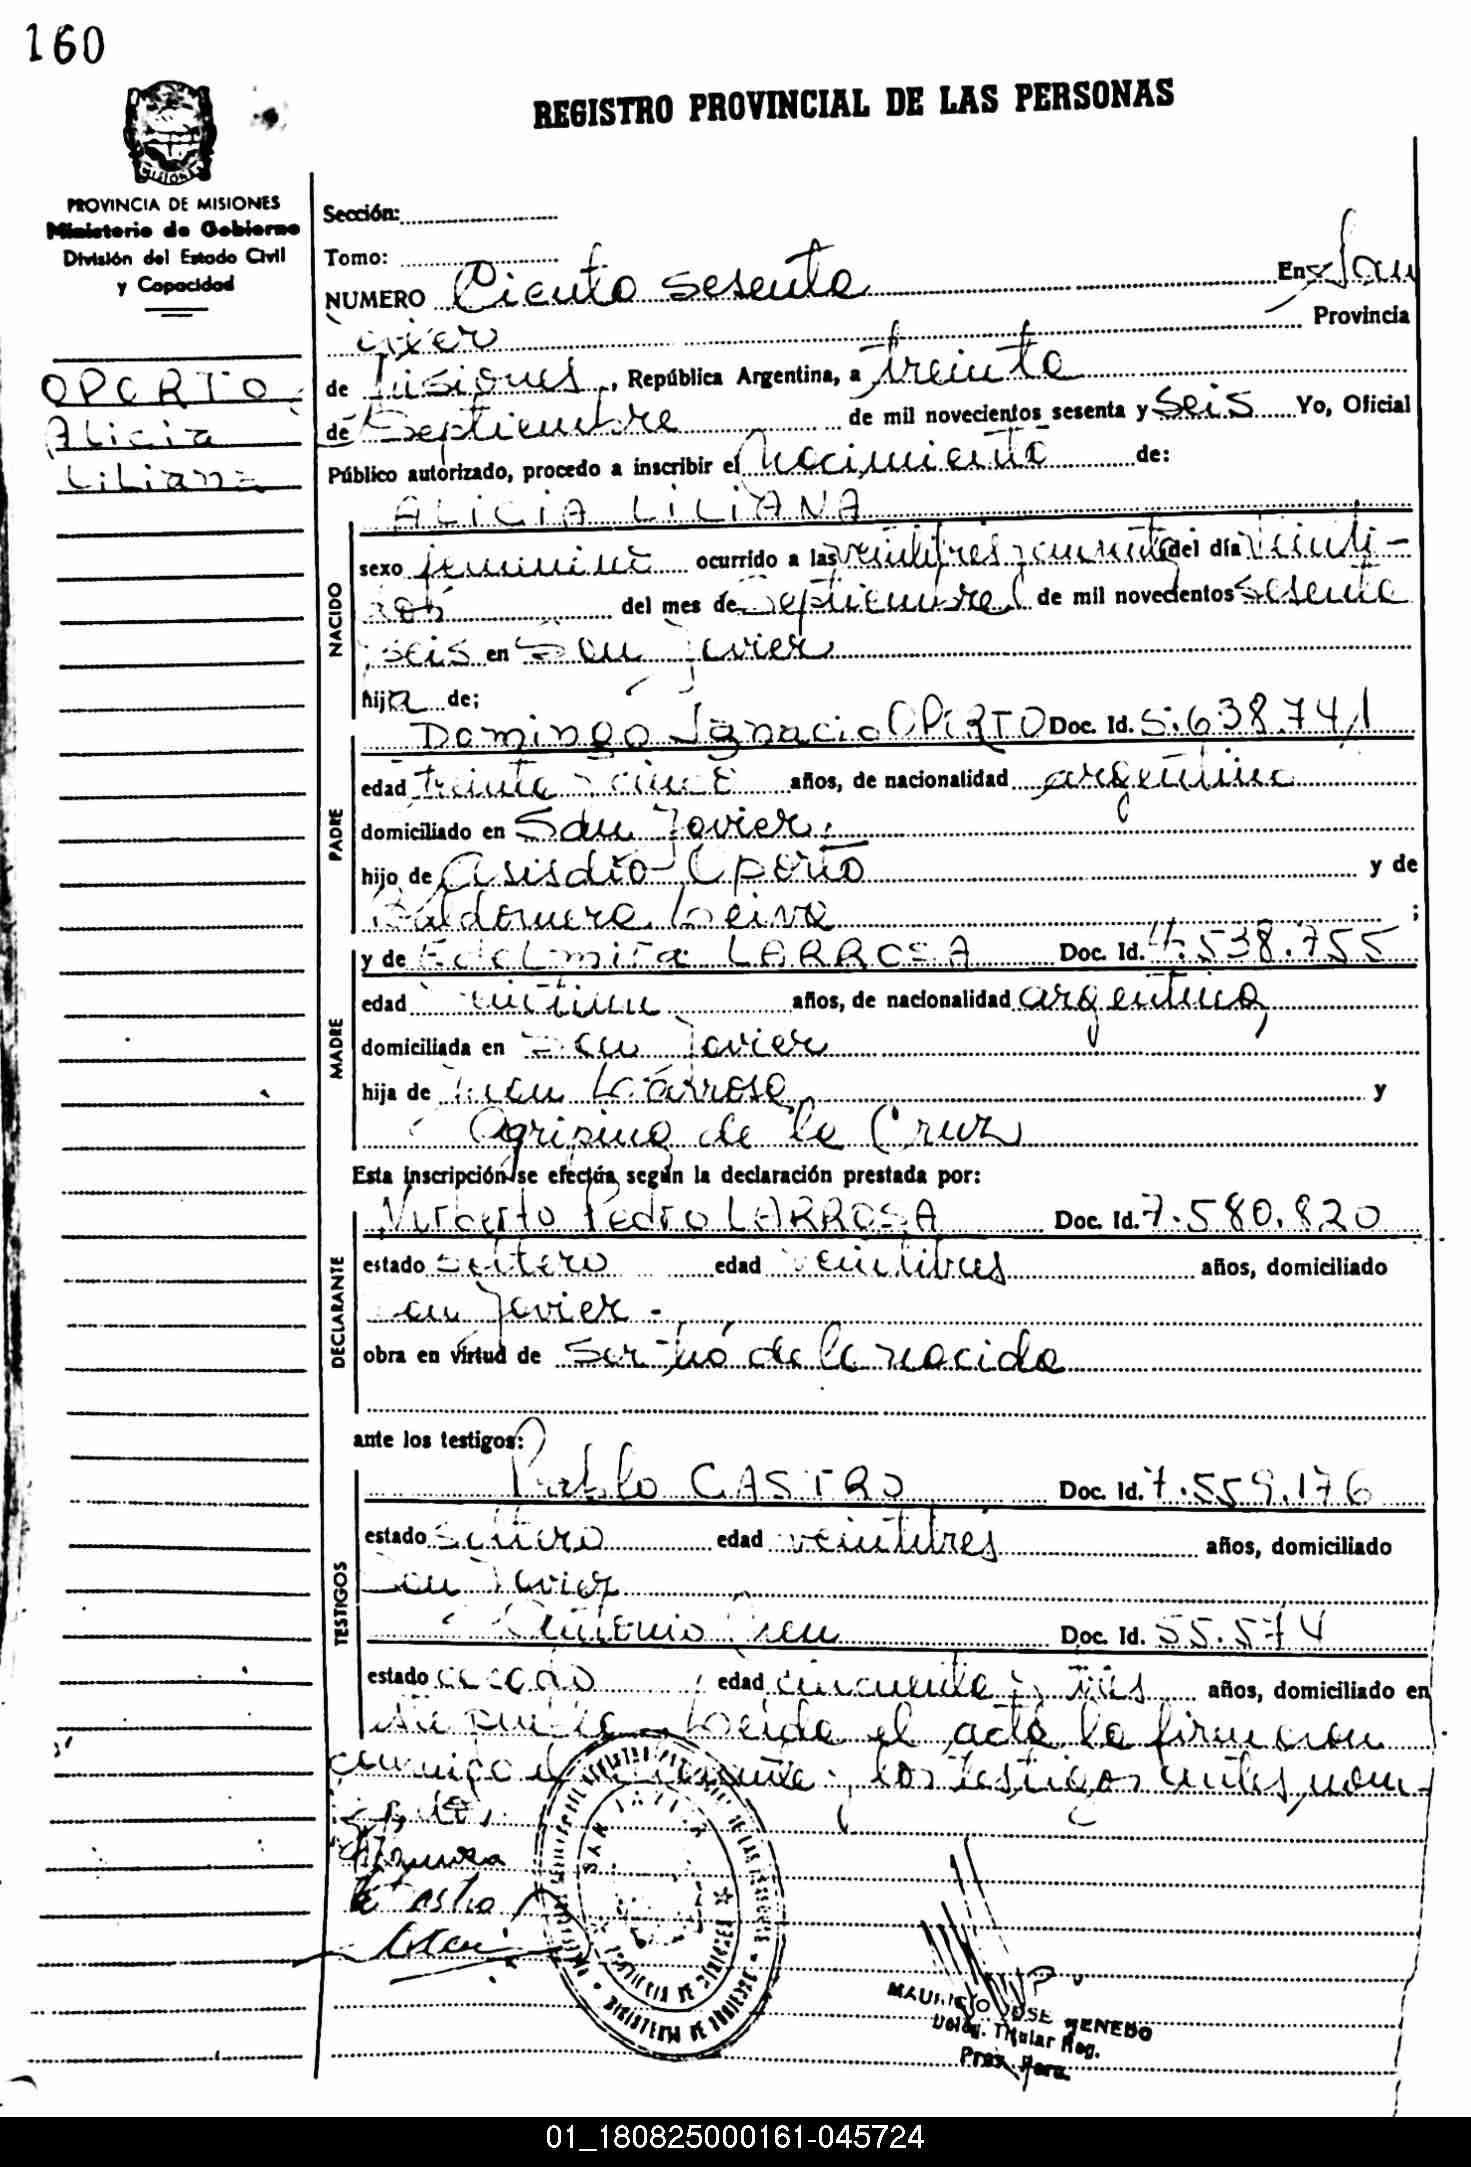 160
REGISTRO PROVINCIAL DE LAS PERSONAS
MISIONES
PROVINCIA DE MISIONES
Ministerio de Gobierno
División del Estado Civil
y Capacidad
OPORTO
Alicia
Liliana
Sección:
Tomo:
NUMERO Ciento sesenta En San
Javier Provincia
de Misiones, República Argentina, a treinta
de Septiembre de mil novecientos sesenta y seis Yo, Oficial
Público autorizado, procedo a inscribir el Nacimiento de:
ALICIA LILIANA
NACIDO
sexo femenino ocurrido a las veintitres y cuarenta del día veinti-
dos del mes de Septiembre de mil novecientos sesenta
y seis en San Javier
hija de;
PADRE
Domingo Ignacio OPORTO Doc. Id. 5.638.741
edad treinta y cinco años, de nacionalidad argentina
domiciliado en San Javier.
hijo de Oporto y de
Baldomera Leiva ;
MADRE
y de Edelmira LARROSA Doc. Id. 4.538.755
edad años, de nacionalidad argentina
domiciliada en San Javier
hija de Juan Larrosa y
Agripina de la Cruz
Esta inscripción se efectúa según la declaración prestada por:
DECLARANTE
Pedro LARROSA Doc. Id. 7.580.820
estado soltero edad veintitres años, domiciliado
San Javier -
obra en virtud de ser tío de la nacida
ante los testigos:
TESTIGOS
Pablo CASTRO Doc. Id. 7.559.176
estado soltero edad veintitres años, domiciliado
San Javier
Antonio Doc. Id. 55.574
estado casado edad cincuenta y tres años, domiciliado en
Leida el acta la firmaron
conmigo el y los testigos antes nom-
brados
Castro
SAN JAVIER
PROVINCIA DE MISIONES
MINISTERIO DE GOBIERNO
MAURICIO JOSE
Deleg. Titular Reg.
Prov. Pers.
01_180825000161-045724